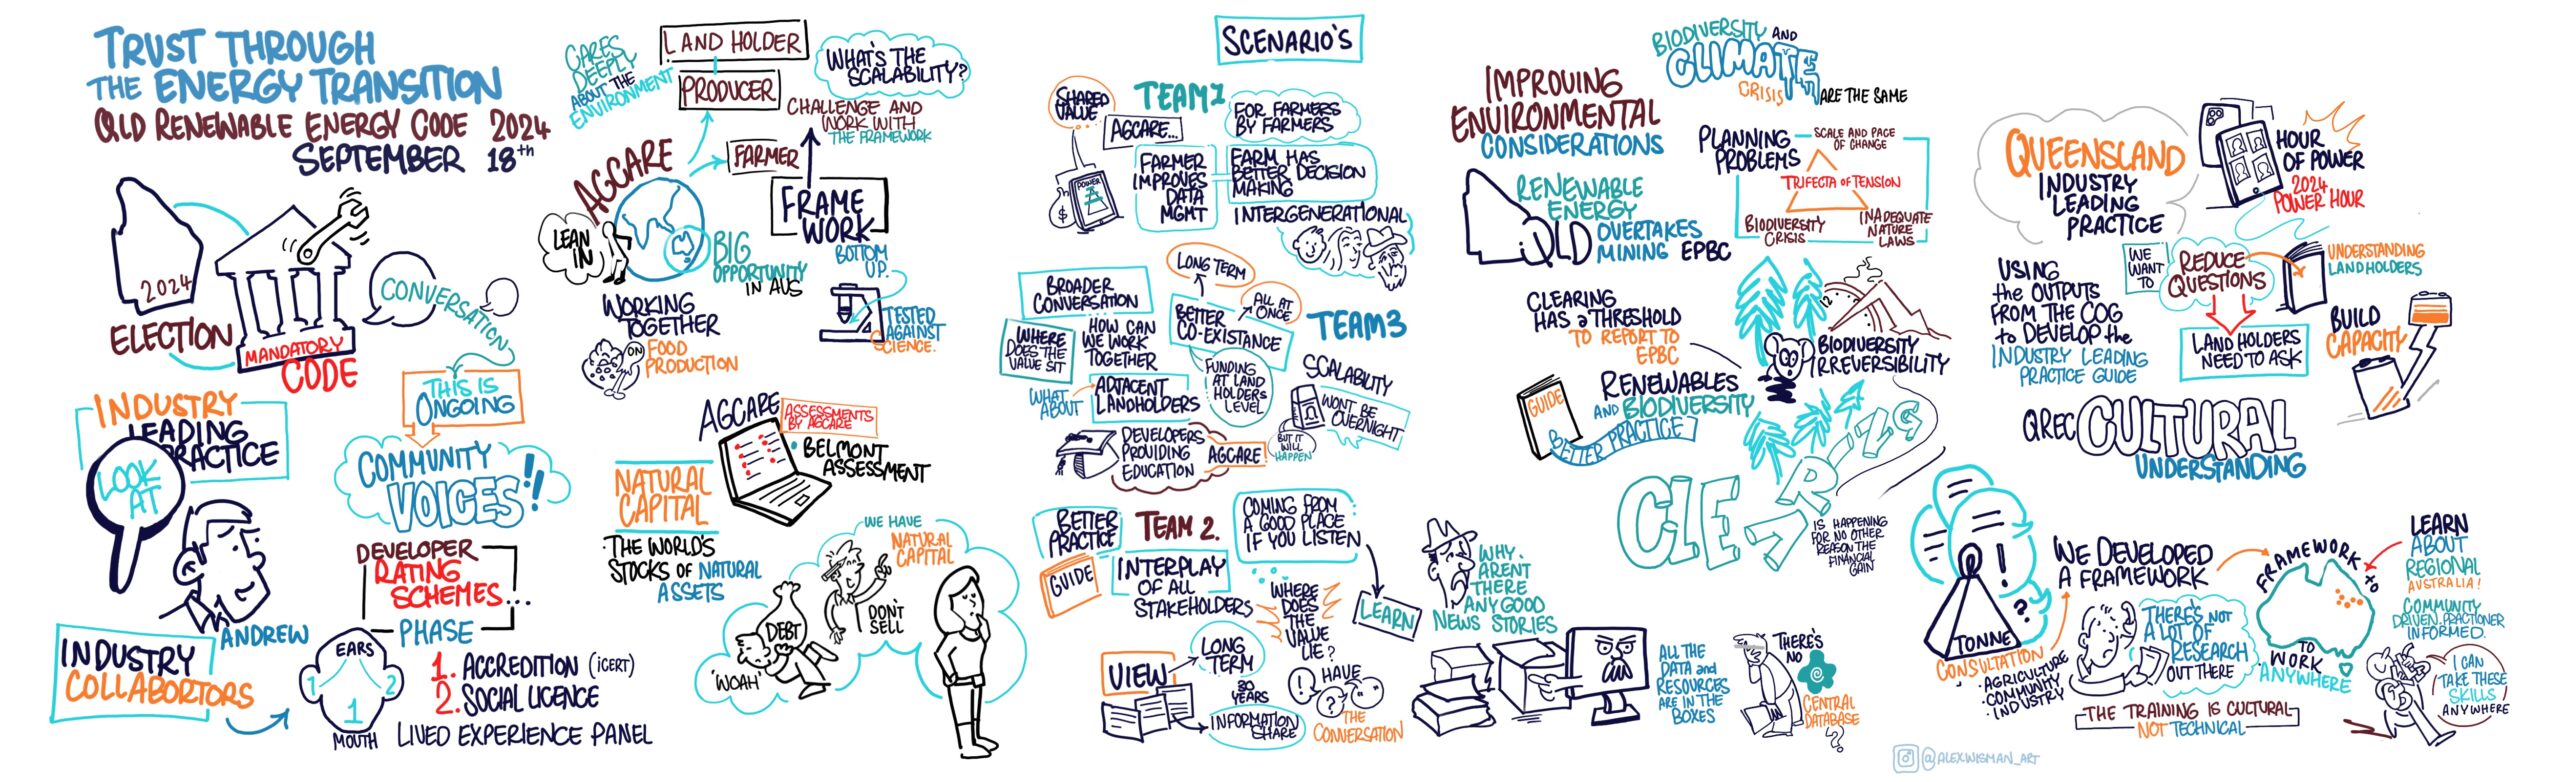 TRUST THROUGH
THE ENERGY TRANSITION
QLD RENEWABLE ENERGY CODE 2024
SEPTEMBER 18th
2024
ELECTION
MANDATORY
CODE
CONVERSATION
THIS IS
ONGOING
INDUSTRY
LEADING
PRACTICE
LOOK
AT
ANDREW
COMMUNITY
VOICES!!
DEVELOPER
RATING
SCHEMES...
PHASE
INDUSTRY
COLLABORTORS
EARS
1 2
1
MOUTH
1. ACCREDITION (iCERT)
2. SOCIAL LICENCE
LIVED EXPERIENCE PANEL
CARES
DEEPLY
ABOUT THE
ENVIRONMENT
LAND HOLDER
PRODUCER
FARMER
WHAT'S THE
SCALABILITY?
CHALLENGE AND
WORK WITH
THE FRAMEWORK
AGCARE
LEAN
IN
BIG
OPPORTUNITY
IN AUS
FRAME
WORK
BOTTOM
UP.
TESTED
AGAINST
SCIENCE.
WORKING
TOGETHER
ON FOOD
PRODUCTION
AGCARE
ASSESSMENTS
BY AGCARE
• BELMONT
ASSESSMENT
NATURAL
CAPITAL
•THE WORLD'S
STOCKS OF NATURAL
ASSETS
WE HAVE
NATURAL
CAPITAL
DEBT
DON'T
SELL
'WOAH'
SCENARIO'S
SHARED
VALUE
TEAM 1
AGCARE...
FOR FARMERS
BY FARMERS
POWER
$
FARMER
IMPROVES
DATA
MGMT
FARM HAS
BETTER DECISION
MAKING
INTERGENERATIONAL
LONG TERM
BROADER
CONVERSATION
ALL AT
ONCE
BETTER
CO-EXISTANCE
TEAM 3
WHERE
DOES THE
VALUE SIT
HOW CAN
WE WORK
TOGETHER
FUNDING
AT LAND
HOLDERS
LEVEL
SCALABILITY
WHAT
ABOUT
ADJACENT
LANDHOLDERS
WONT BE
OVERNIGHT
BUT IT
WILL
HAPPEN
DEVELOPERS
PROVIDING
EDUCATION
AGCARE!
BETTER
PRACTICE
GUIDE
TEAM 2.
COMING FROM
A GOOD PLACE
IF YOU LISTEN
INTERPLAY
OF ALL
STAKEHOLDERS
WHERE
DOES
THE
VALUE
LIE?
LEARN
VIEW
LONG
TERM
30
YEARS
INFORMATION
SHARE
HAVE
! ? " "
THE
CONVERSATION
WHY
ARENT
THERE
ANY GOOD
NEWS STORIES
ALL THE
DATA and
RESOURCES
ARE IN THE
BOXES
THERE'S
NO
CENTRAL
DATABASE
?
IMPROVING
ENVIRONMENTAL
CONSIDERATIONS
BIODIVERSITY AND
CLIMATE
CRISIS
ARE THE SAME
PLANNING
PROBLEMS
SCALE AND PACE
OF CHANGE
TRIFECTA OF TENSION
BIODIVERSITY
CRISIS
INADEQUATE
NATURE
LAWS
RENEWABLE
ENERGY
QLD OVERTAKES
MINING EPBC
CLEARING
HAS a THRESHOLD
TO REPORT TO
EPBC
12
BIODIVERSITY
IRREVERSIBILITY
GUIDE
RENEWABLES
AND BIODIVERSITY
BETTER PRACTICE
CLEARING
IS HAPPENING
FOR NO OTHER
REASON THE
FINANCIAL
GAIN
QUEENSLAND
INDUSTRY
LEADING
PRACTICE
HOUR
OF POWER
2024
POWER HOUR
WE
WANT
TO
REDUCE
QUESTIONS
UNDERSTANDING
LANDHOLDERS
USING
the OUTPUTS
FROM THE COG
to DEVELOP the
INDUSTRY LEADING
PRACTICE GUIDE
LAND HOLDERS
NEED TO ASK
BUILD
CAPACITY
QREC CULTURAL
UNDERSTANDING
!
?
TONNE
CONSULTATION
• AGRICULTURE
• COMMUNITY
• INDUSTRY
WE DEVELOPED
A FRAMEWORK
FRAMEWORK to
TO
WORK
ANYWHERE
LEARN
ABOUT
REGIONAL
AUSTRALIA!
COMMUNITY
DRIVEN. PRACTITIONER
INFORMED.
THERE'S NOT
A LOT OF
RESEARCH
OUT THERE
I CAN
TAKE THESE
SKILLS
ANYWHERE
THE TRAINING IS CULTURAL
NOT TECHNICAL
@ALEX.WISMAN_ART